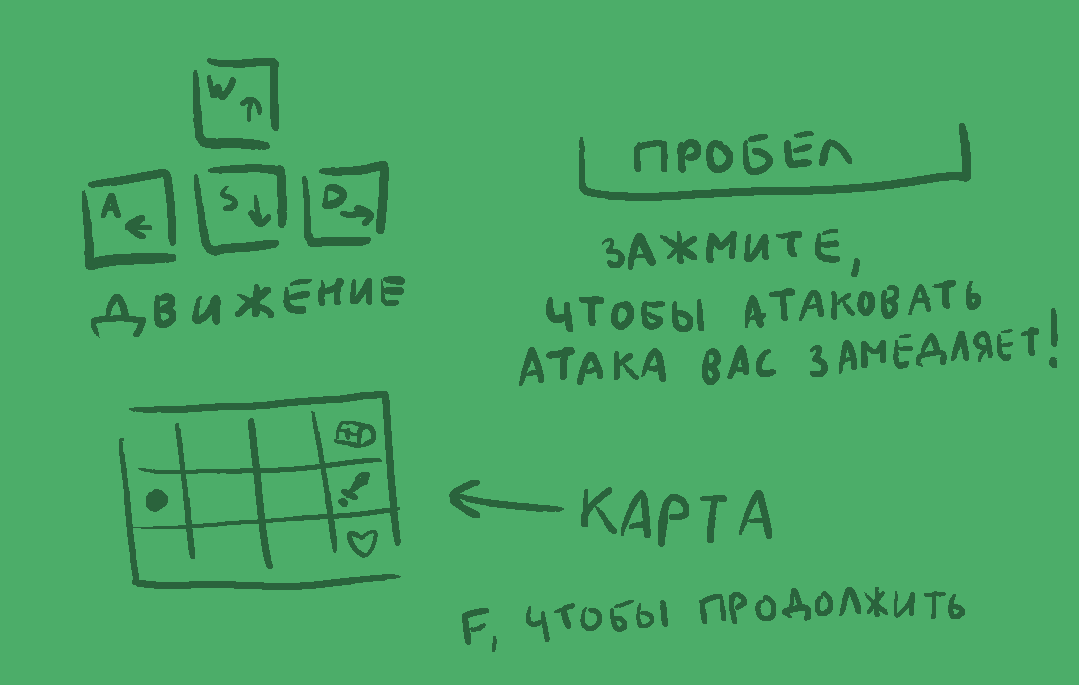 W
A
S
D
ДВИЖЕНИЕ
ПРОБЕЛ
ЗАЖМИТЕ,
ЧТОБЫ АТАКОВАТЬ
АТАКА ВАС ЗАМЕДЛЯЕТ!
КАРТА
F, ЧТОБЫ ПРОДОЛЖИТЬ